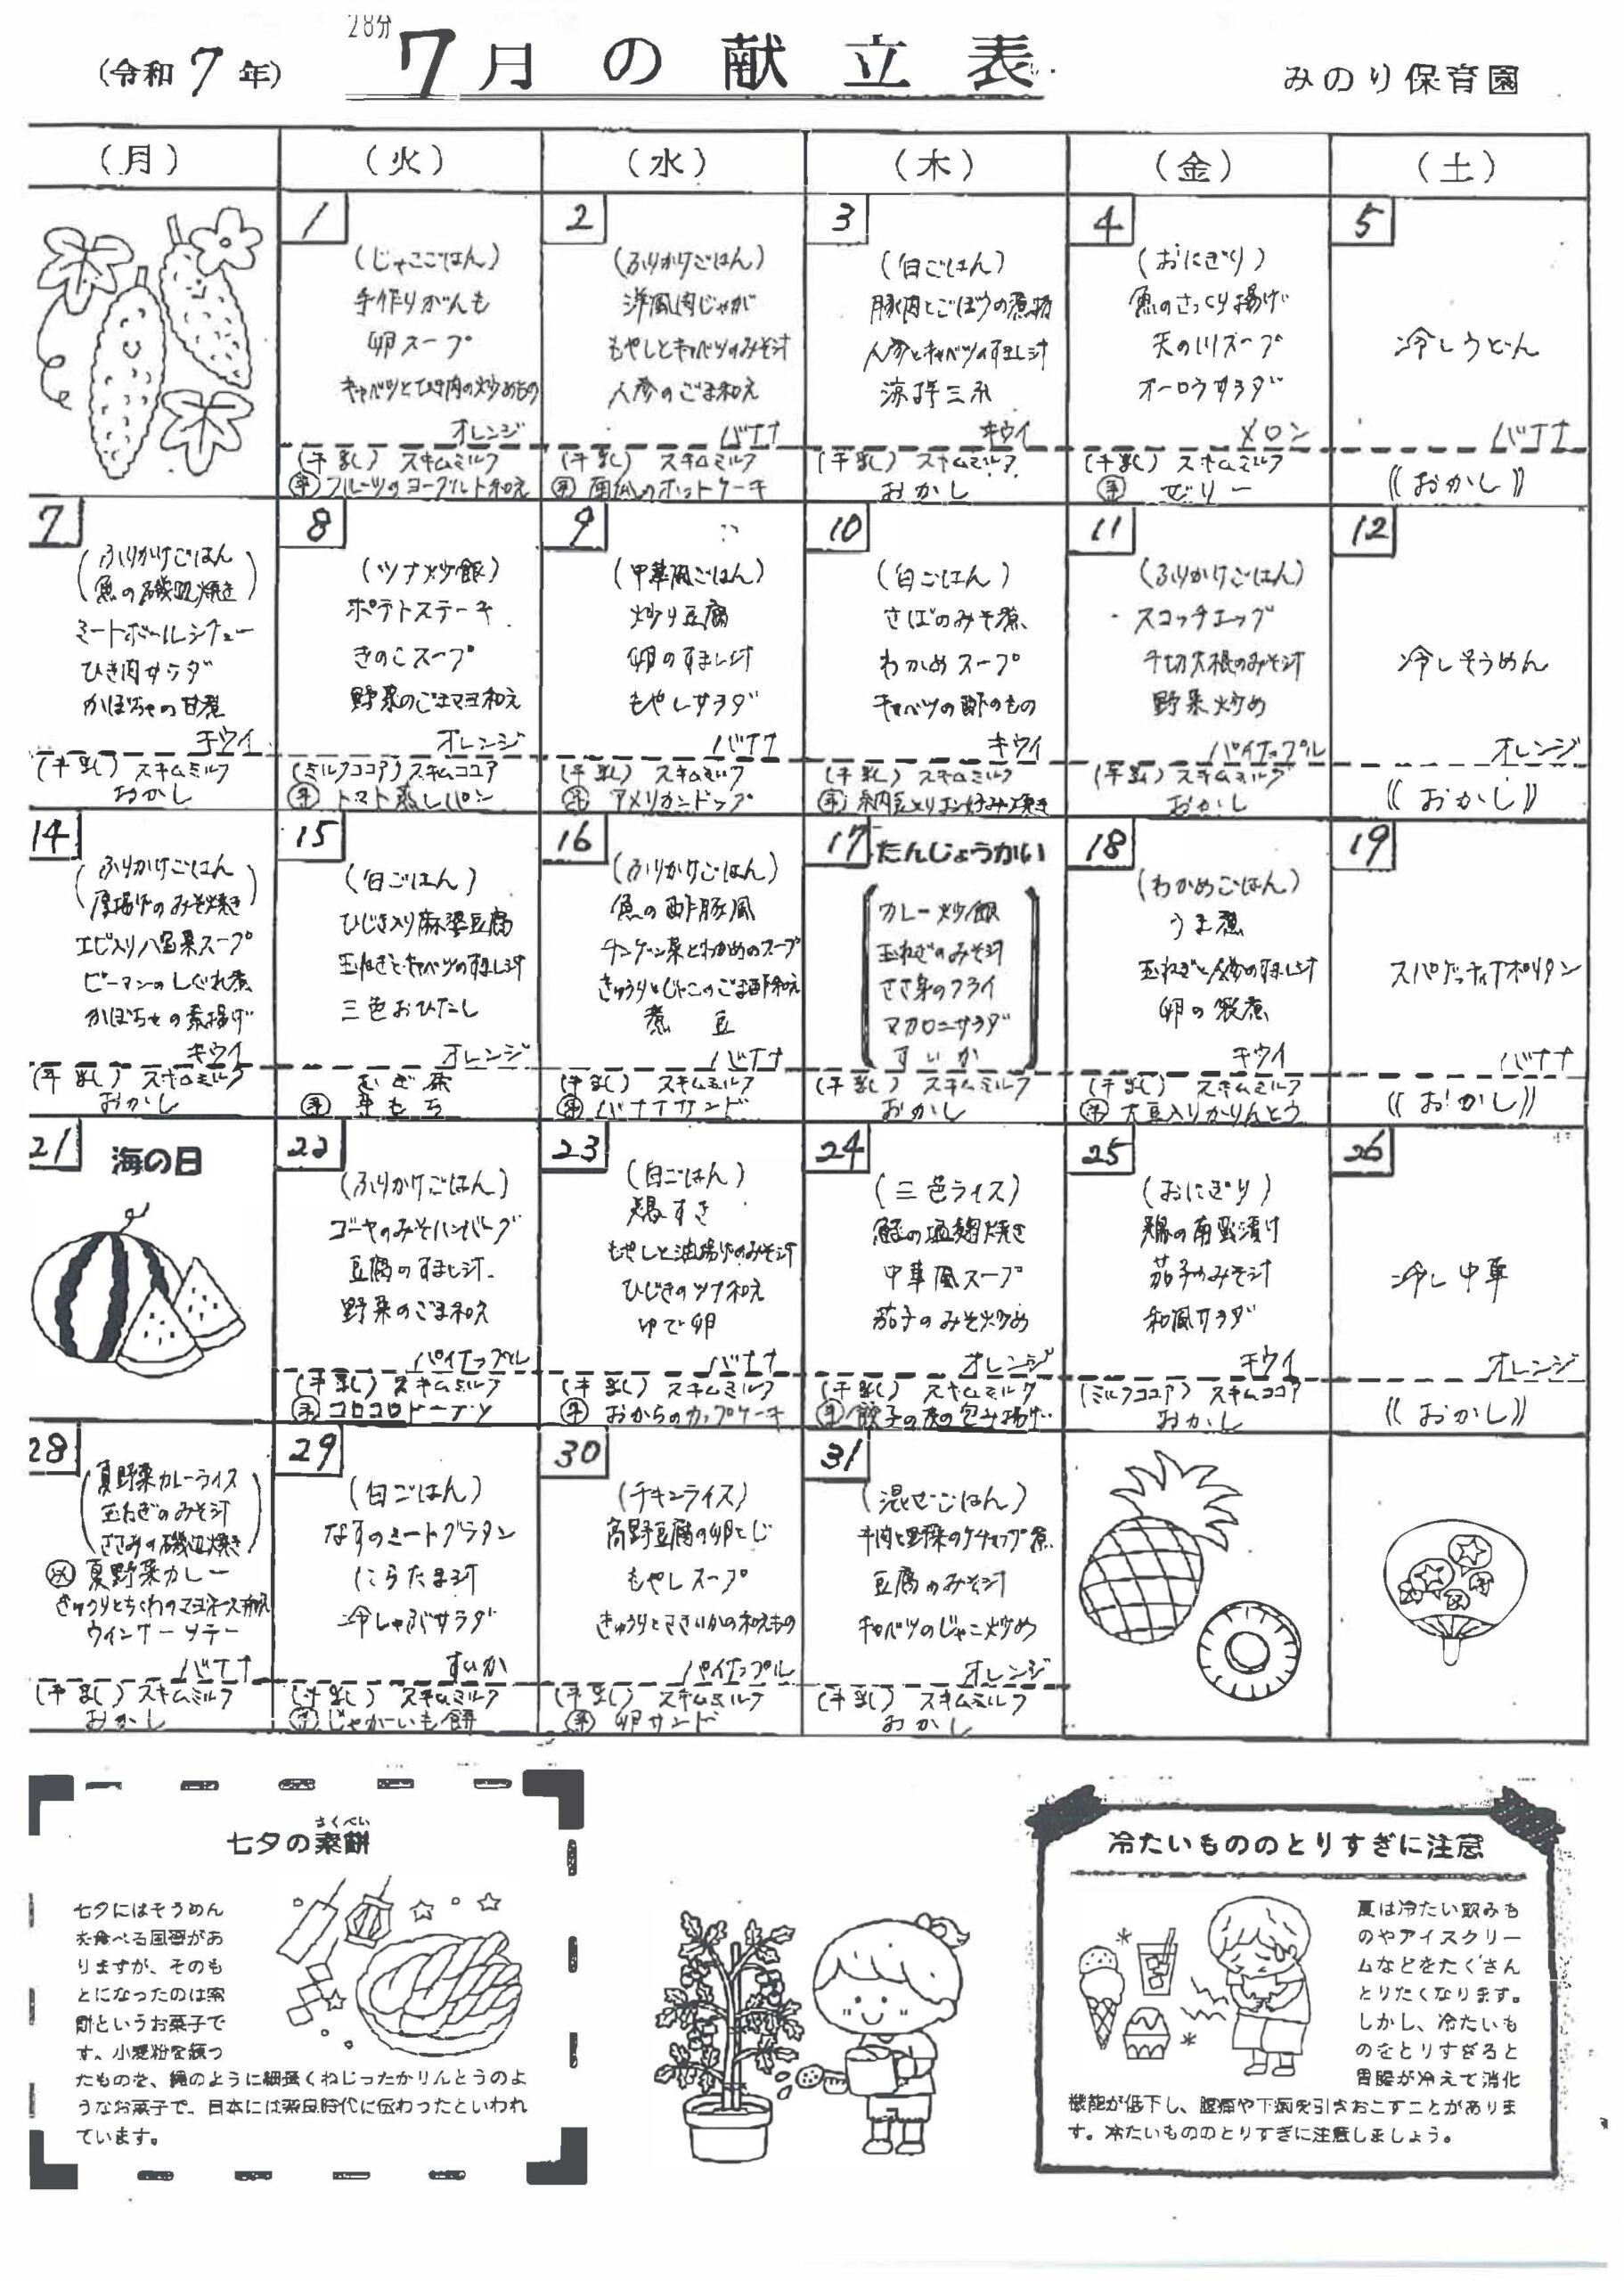 28分
(令和7年)
7月の献立表
みのり保育園
(月)
(火)
(水)
(木)
(金)
(土)
1
(じゃこごはん)
手作りがんも
卵スープ
キャベツとひき肉の炒めもの
オレンジ
(牛乳) スキムミルク
フルーツのヨーグルト和え
2
(ふりかけごはん)
洋風肉じゃが
もやしとキャベツのみそ汁
人参のごま和え
バナナ
(牛乳) スキムミルク
南瓜のホットケーキ
3
(白ごはん)
豚肉とごぼうの煮物
人参とキャベツのすまし汁
涼拌三糸
キウイ
(牛乳) スキムミルク
おかし
4
(おにぎり)
魚のさっくり揚げ
天の川スープ
オーロラサラダ
メロン
(牛乳) スキムミルク
㊍ ゼリー
5
冷しうどん
バナナ
《おかし》
7
(ふりかけごはん
魚の磯辺焼き)
ミートボールシチュー
ひき肉サラダ
かぼちゃの甘煮
キウイ
(牛乳) スキムミルク
おかし
8
(ツナ炒飯)
ポテトステーキ
きのこスープ
野菜のごまマヨ和え
オレンジ
(ミルクココア) スキムココア
トマト蒸しパン
9
(中華風ごはん)
炒り豆腐
卵のすまし汁
もやしサラダ
バナナ
(牛乳) スキムミルク
アメリカンドッグ
10
(白ごはん)
さばのみそ煮
わかめスープ
キャベツの酢のもの
キウイ
(牛乳) スキムミルク
納豆入りお好み焼き
11
(ふりかけごはん)
スコッチエッグ
千切大根のみそ汁
野菜炒め
パイナップル
(牛乳) スキムミルク
おかし
12
冷しそうめん
オレンジ
《おかし》
14
(ふりかけごはん
厚揚げのみそ焼き)
エビ入り八宝菜スープ
ピーマンのしぐれ煮
かぼちゃの素揚げ
キウイ
(牛乳) スキムミルク
おかし
15
(白ごはん)
ひじき入り麻婆豆腐
玉ねぎとキャベツのすまし汁
三色おひたし
オレンジ
むぎ茶
もち
16
(ふりかけごはん)
魚の酢豚風
チンゲン菜とわかめのスープ
きゅうりとじゃこのごま酢和え
煮豆
バナナ
(牛乳) スキムミルク
バナナサンド
17 たんじょうかい
カレー炒飯
玉ねぎのみそ汁
ささ身のフライ
マカロニサラダ
すいか
(牛乳) スキムミルク
おかし
18
(わかめごはん)
うま煮
玉ねぎと人参のすまし汁
卵の袋煮
キウイ
(牛乳) スキムミルク
大豆入りかりんとう
19
スパゲッティナポリタン
バナナ
《おかし》
21 海の日
22
(ふりかけごはん)
ゴーヤのみそハンバーグ
豆腐のすまし汁
野菜のごま和え
パイナップル
(牛乳) スキムミルク
コロコロドーナツ
23
(白ごはん)
鶏すき
もやしと油揚げのみそ汁
ひじきのツナ和え
ゆで卵
バナナ
(牛乳) スキムミルク
おからのカップケーキ
24
(三色ライス)
鮭の塩麹焼き
中華風スープ
茄子のみそ炒め
オレンジ
(牛乳) スキムミルク
餃子の皮の包み揚げ
25
(おにぎり)
鶏の南蛮漬け
茄子のみそ汁
和風サラダ
キウイ
(ミルクココア) スキムココア
おかし
26
冷し中華
オレンジ
《おかし》
28
(夏野菜カレーライス
玉ねぎのみそ汁
ささみの磯辺焼き)
夏野菜カレー
きゅうりとちくわのマヨネーズ和え
ウィンナーソテー
バナナ
(牛乳) スキムミルク
おかし
29
(白ごはん)
なすのミートグラタン
にらたま汁
冷しゃぶサラダ
すいか
(牛乳) スキムミルク
じゃがいも餅
30
(チキンライス)
高野豆腐の卵とじ
もやしスープ
きゅうりとささいかの和えもの
パイナップル
(牛乳) スキムミルク
卵サンド
31
(混ぜごはん)
牛肉と野菜のケチャップ煮
豆腐のみそ汁
キャベツのじゃこ炒め
オレンジ
(牛乳) スキムミルク
おかし
さくべい
七夕の索餅
七夕にはそうめん
を食べる風習があ
りますが、そのも
とになったのは索
餅というお菓子で
す。小麦粉を練っ
たものを、縄のように細長くねじったかりんとうのよ
うなお菓子で、日本には奈良時代に伝わったといわれ
ています。
冷たいもののとりすぎに注意
夏は冷たい飲みも
のやアイスクリー
ムなどをたくさん
とりたくなります。
しかし、冷たいも
のをとりすぎると
胃腸が冷えて消化
機能が低下し、腹痛や下痢を引きおこすことがありま
す。冷たいもののとりすぎに注意しましょう。